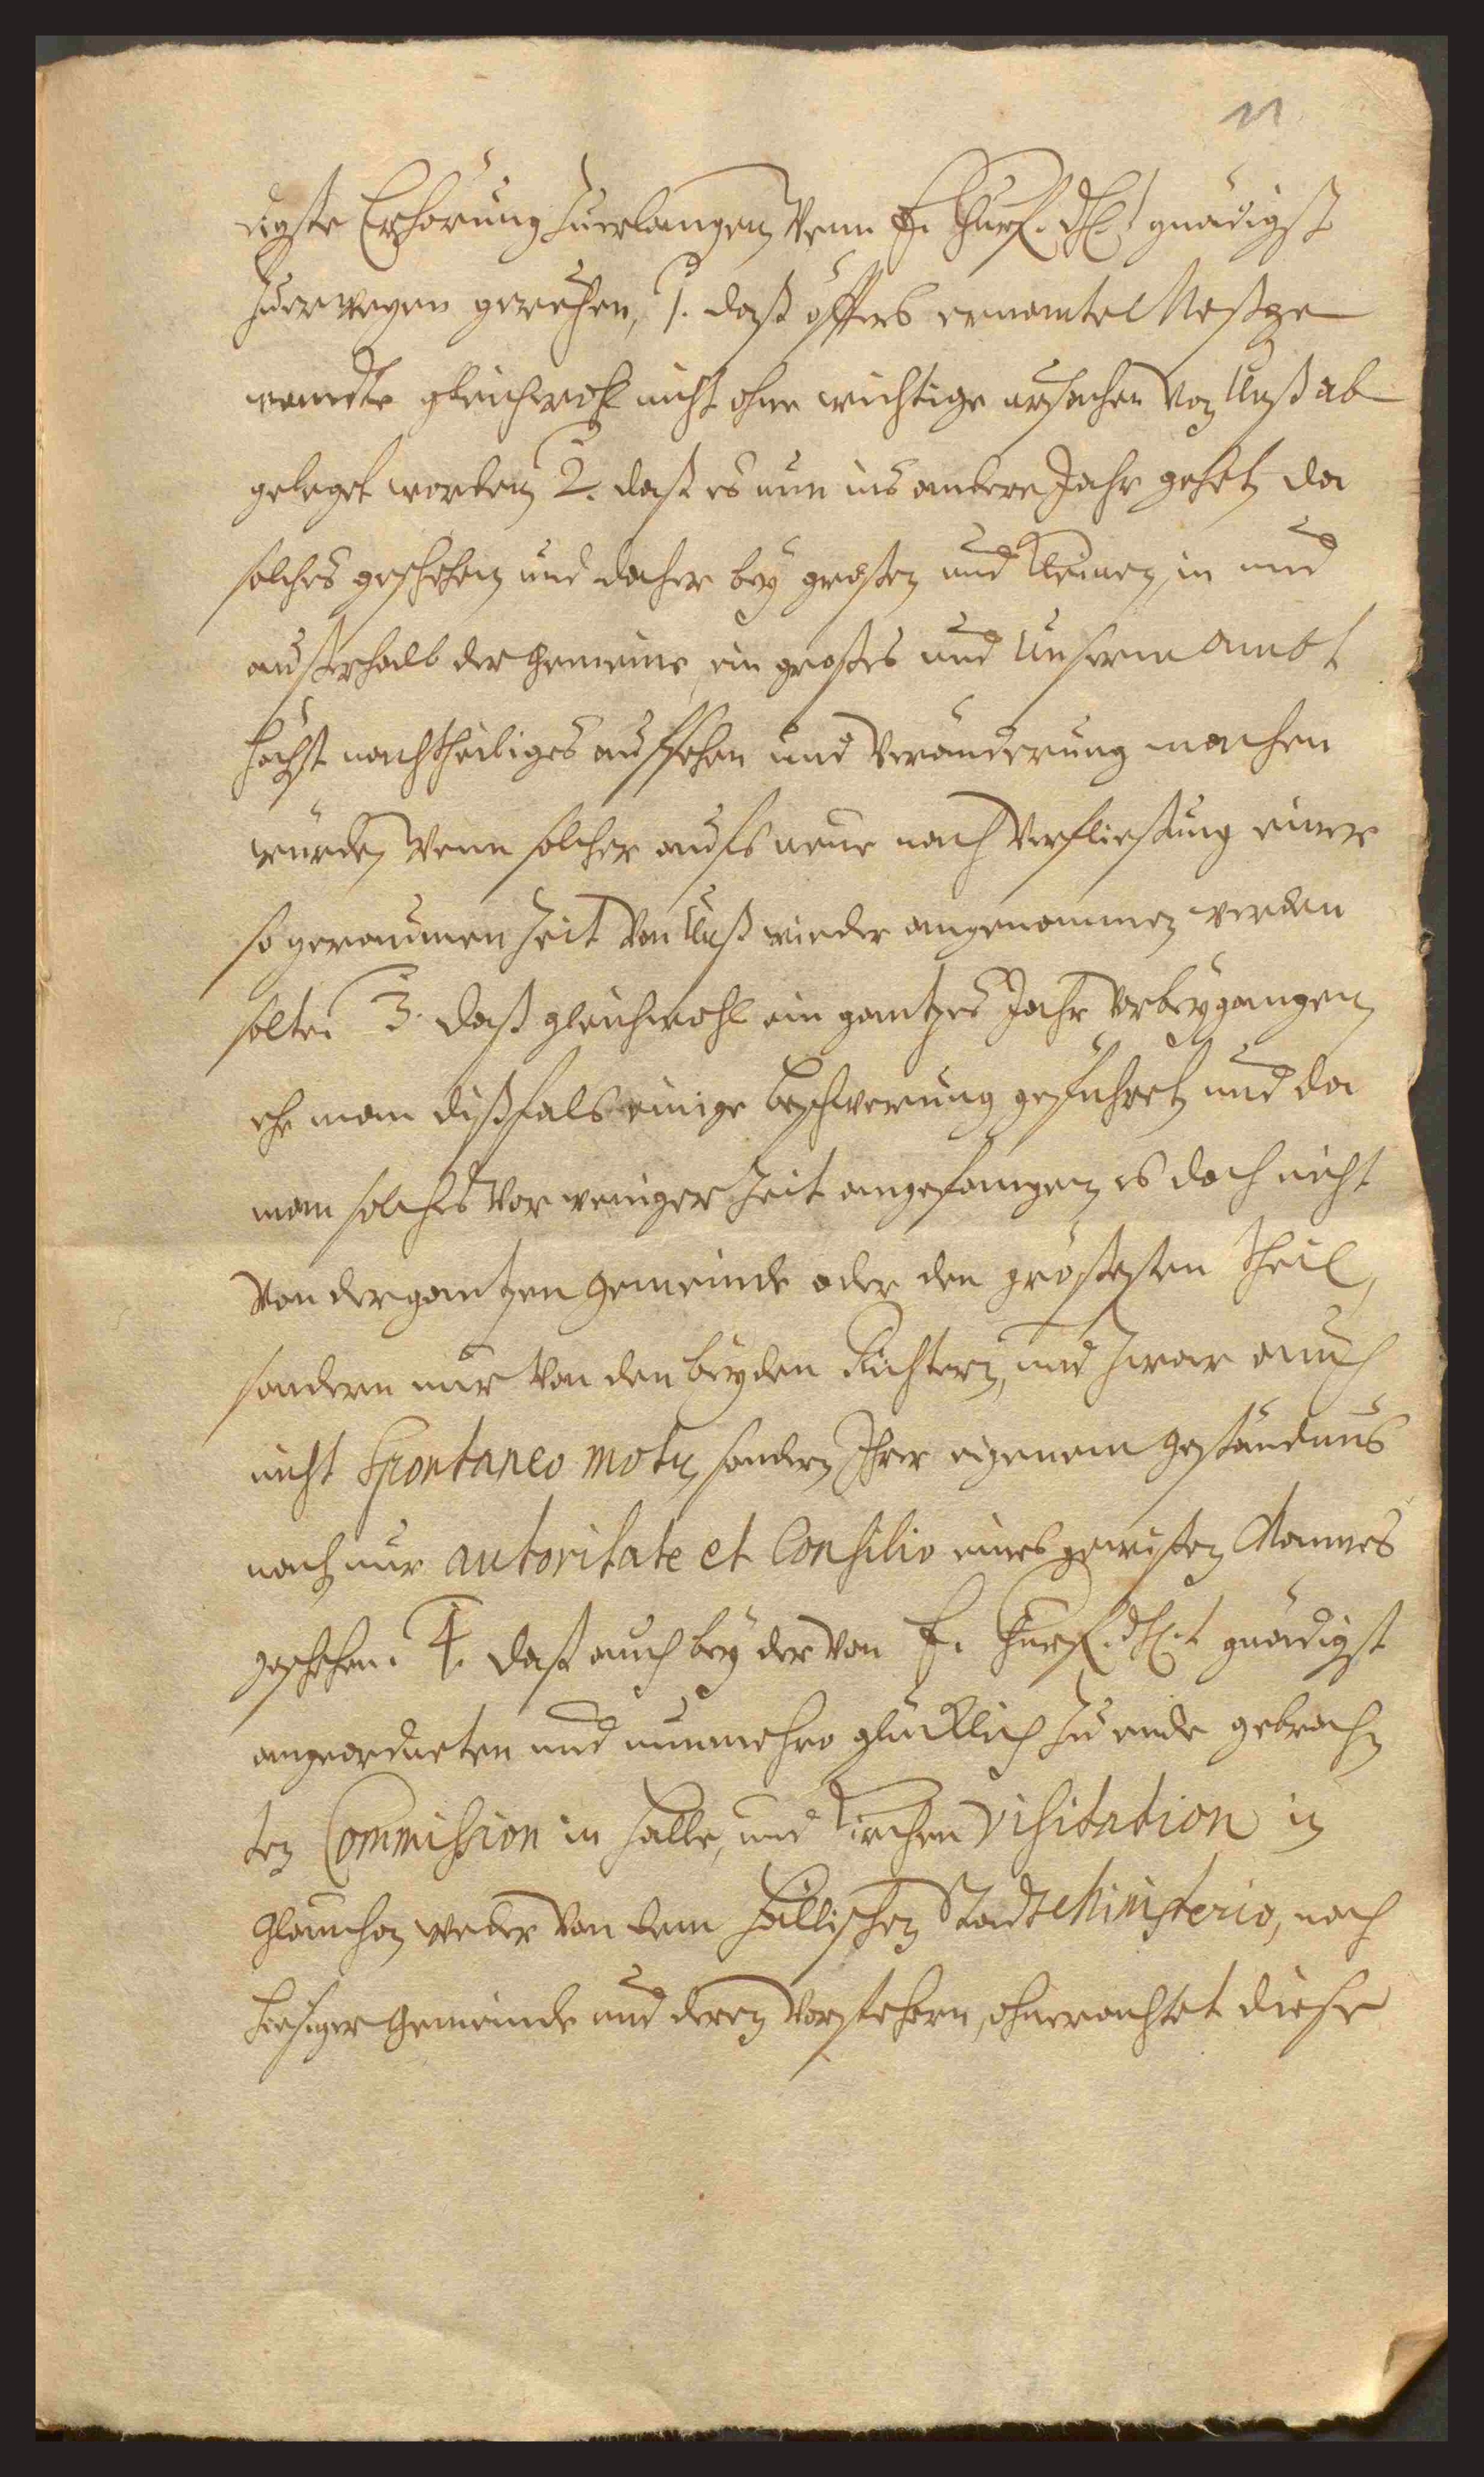 11
digste Erhörung zuerlangen, wenn E. Churf. Dhl. gnädigst
zuerwegen geruhen, 1. daß öffters ernante Meßge
wandte gleichwohl nicht ohne wichtige ursachen von Unß ab
geleget worden, 2. daß es nun ins andere Jahr gehet, da
solches geschehen, und daher bey großen und kleinen, in und
außerhalb der Gemeine, ein großes und Unserm Ambt
höchst nachtheiliges auffsehen und veränderung machen
würde, wenn solche auffs neue nach verfließung einer
so geraumen Zeit von Unß wieder angenommen werden
solten. 3. daß gleichwohl ein gantzes Jahr vorbeygangen,
ehe man dißfals einige beschwerung geführet, und da
man solches vor weniger Zeit angefangen, es doch nicht
von der gantzen Gemeinde oder den größesten Theil,
sondern nur von den beyden Richtern, und zwar auch
nicht Spontaneo motu, sondern Ihrer eigenem geständnus
nach, nur autoritate et Consilio eines gewißen Mannes
geschehen. 4. daß auch bey der von E. Churf. Dhl.t gnädigst
angeordneten und nunmehro glücklich zu ende gebrach
ten Commission in Halle, und Kirchen Visitation in
Glaucha, weder von dem Hällischen Stadt Ministerio, noch
hiesiger Gemeinde und deren Vorstehern, ohnerachtet diese